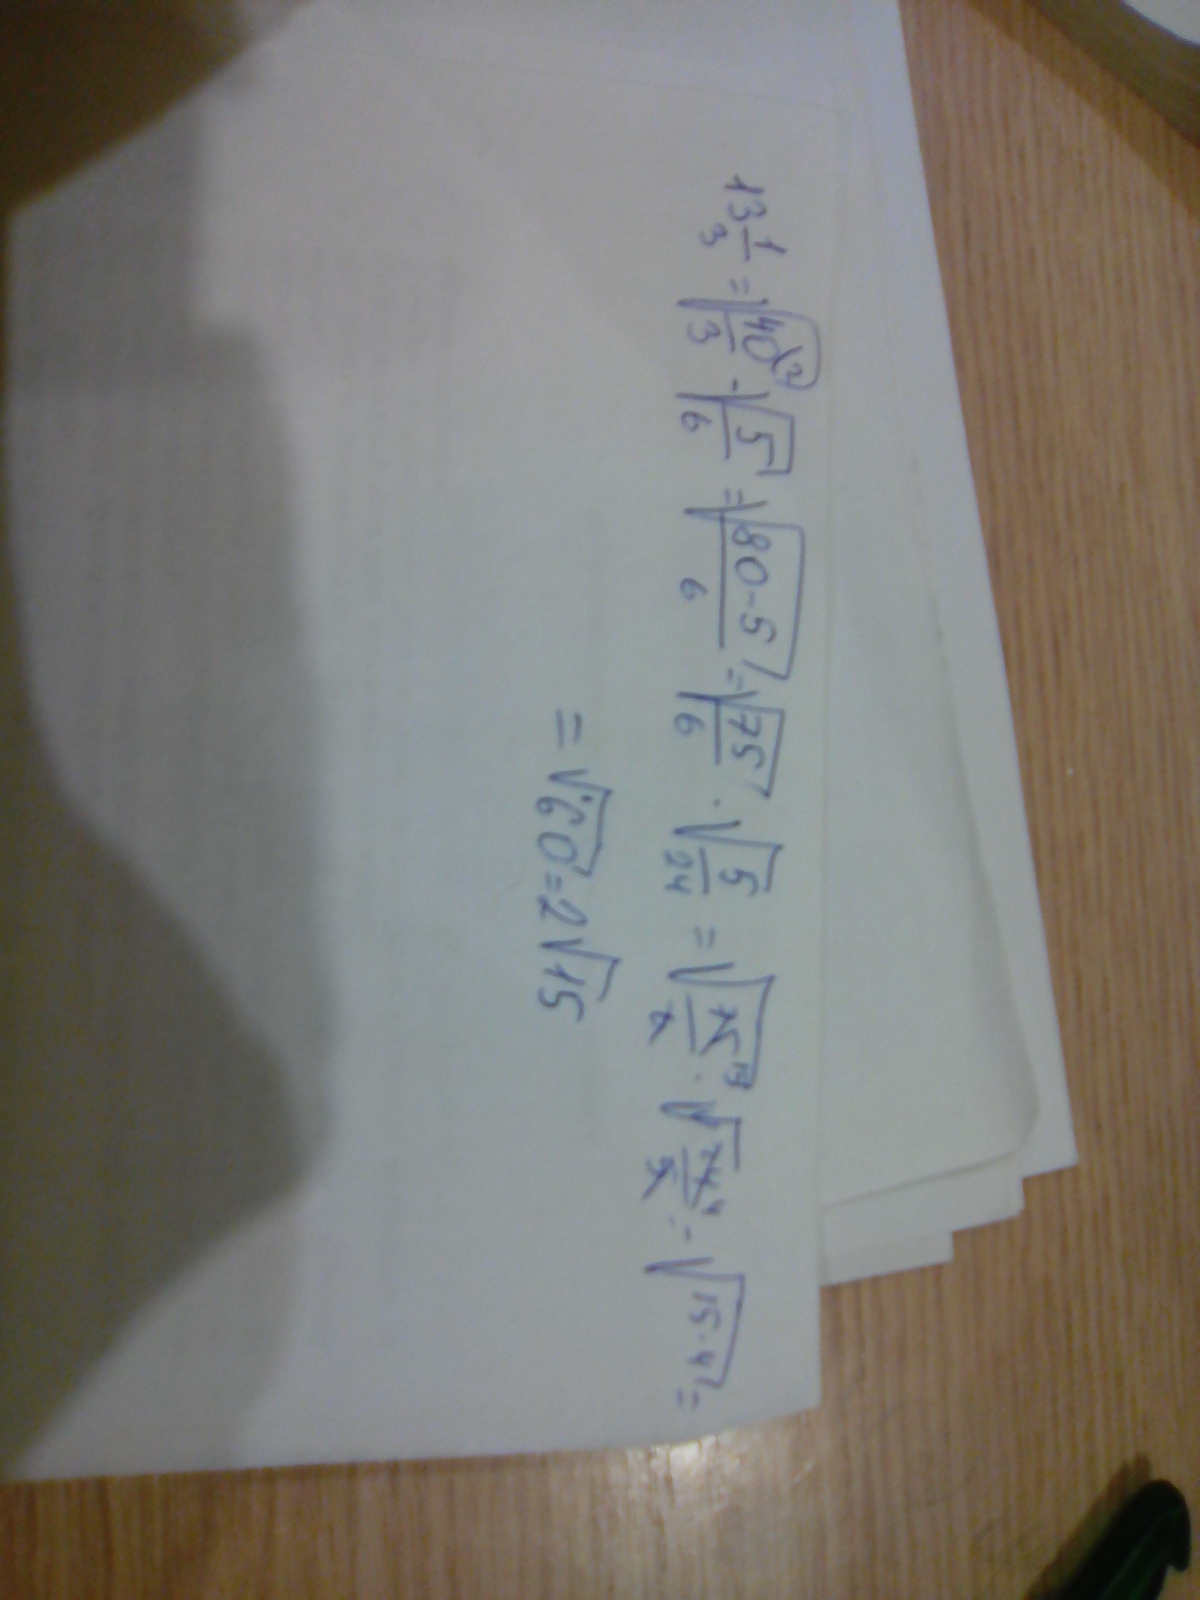 13 1/3 = √(40/3)⁽² - √(5/6) = √((80-5)/6) = √(75/6) · √(5/24) = √(75¹⁵/6) · √(24⁴/5) = √(15·4) =
= √60 = 2√15